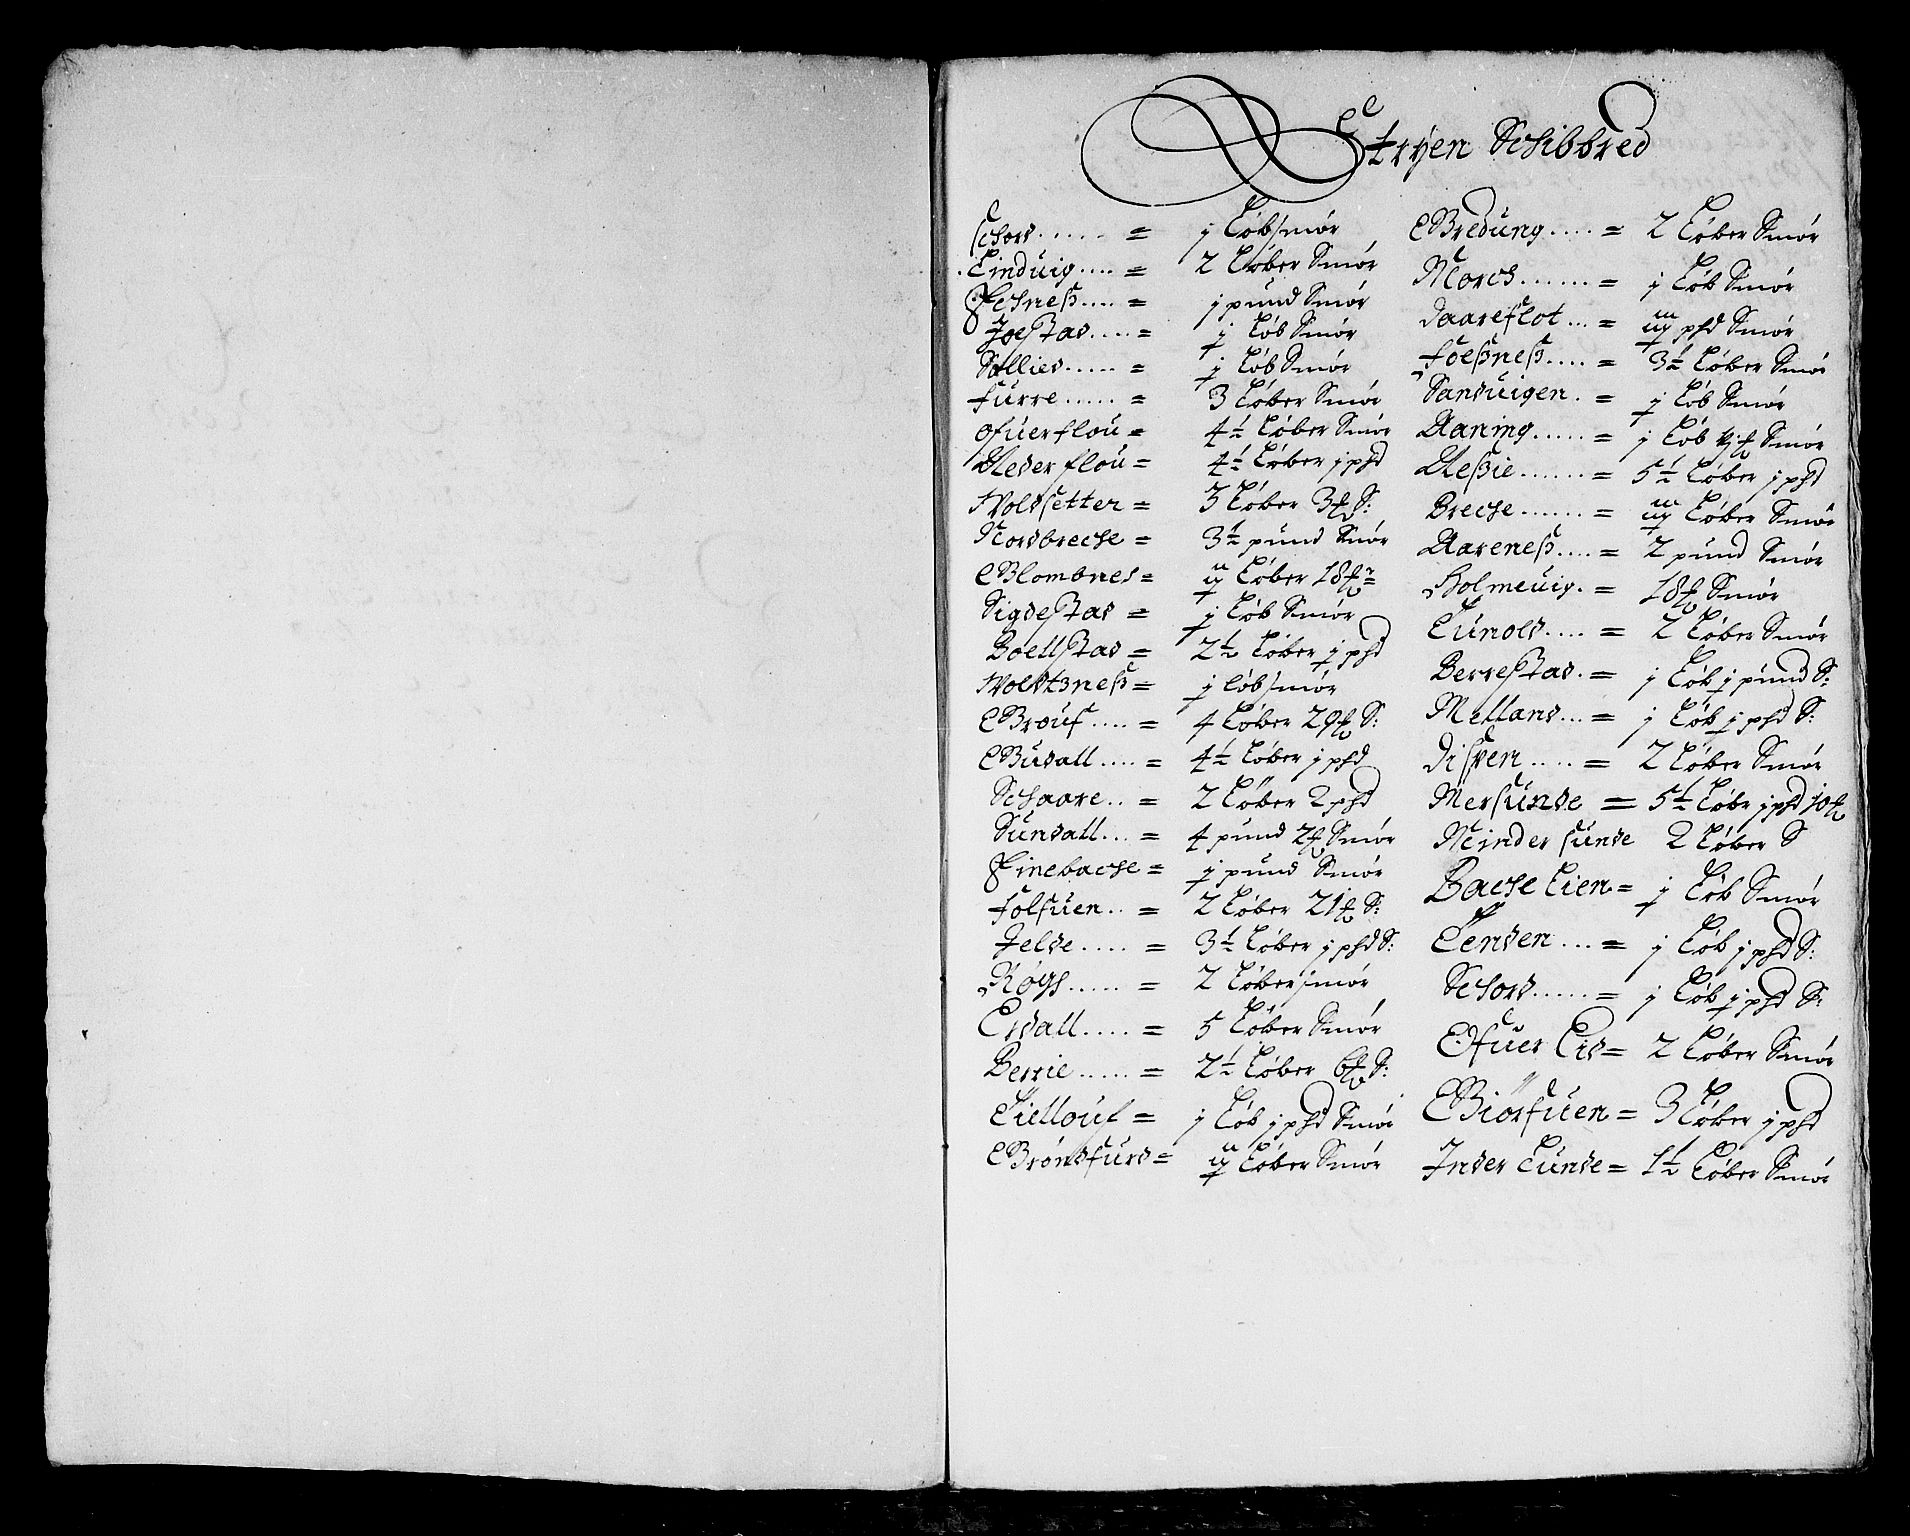 Stryen Schibbred
Schord ...... = j Løb smør
Linduig .... = 2 Løber Smør
Fehneß .... = j pund Smør
Joestad .... = j Løb Smør
Sollied ..... = j Løb Smør
Furre ..... = 3 Løber Smør
Ofuerflou = 4½ Løber Smør
Nederflou = 4½ Løber j phd
Woldsetter = 3 Løber S:
Nordbreche = 3½ pund Smør
Blombnes = ij Løber
Sigdestad = j Løb Smør
Boellstad = 2½ Løber j phd
Woldtzneß = j løb smør
Brouf .... = 4 Løber S:
Budall .... = 4½ Løber j phd
Schaare .. = 2 Løber 2 phd
Sundall ... = 4 pund Smør
Finebache = j pund Smør
Folfuen .. = 2 Løber S:
Jelde .... = 3½ Løber j phd S:
Røgs ..... = 2 Løber smør
Erdall .... = 5 Løber Smør
Berrie ..... = 2½ Løber S:
Tiellouf = j Løb j phd Smør
Brøndfurd = ij Løber Smør
Bredung .... = 2 Løber Smør
Morch ...... = j Løb Smør
Daareflot ... = iij phd Smør
Foeßneß .... = 3½ Løber Smør
Sanduigen . = j Løb Smør
Naning ..... = j Løb Smør
Neßie ...... = 5½ Løber j phd
Breche ...... = iij Løber Smør
Nareneß .... = 2 pund Smør
Holmeuig . = Smør
Lunold .... = 2 Løber Smør
Berrestad . = j Løb j pund S:
Melland ... = j Løb j phd S:
Disven ..... = 2 Løber Smør
Mersunde = 5½ Løbr j phd
Minder sunde 2 Løber S
Bache Lien = j Løb Smør
Lenden ... = j Løb j phd S:
Schord ..... = j Løb j phd S:
Ofuer Eid = 2 Løber Smør
Biørfuen = 3 Løber j phd
Inder Lunde = 1½ Løber Smør